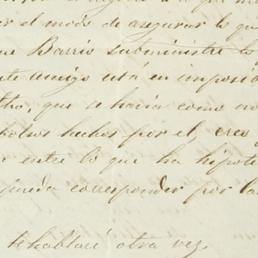 er el modo de asegurar lo qu
ue Barrio subministre lo
te amigo está en imposib
cho, que se haria como no
bolsos hechos por el, creo
o entre lo que ha hipote
pueda corresponder por la
te hablaré otra vez,